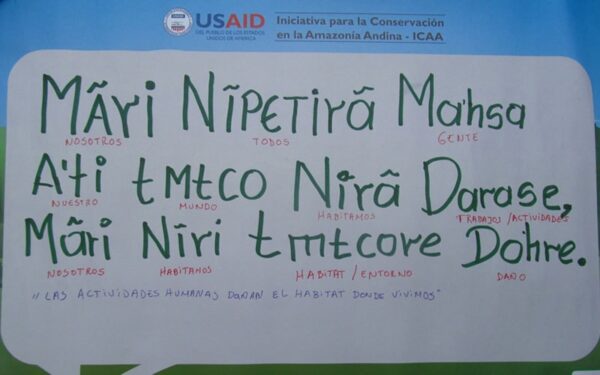 USAID
DEL PUEBLO DE LOS ESTADOS
UNIDOS DE AMÉRICA
Iniciativa para la Conservación
en la Amazonía Andina - ICAA
Mãri Nĩpetirã Ma'hsa
NOSOTROS TODOS GENTE
A'ti tmtco Nirã Darase,
NUESTRO MUNDO HABITAMOS TRABAJOS /ACTIVIDADES
Mãri Nĩri tmtcore Dohre.
NOSOTROS HABITAMOS HABITAT /ENTORNO DAÑO
"LAS ACTIVIDADES HUMANAS DAÑAN EL HABITAT DONDE VIVIMOS"